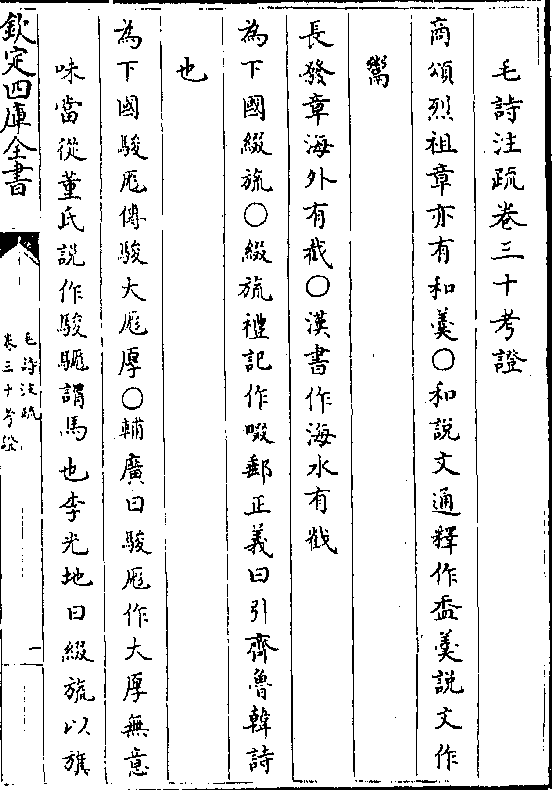 毛詩注疏卷三十考證
商頌烈祖章亦有和羮○和說文通釋作盉羮說文作
鬻
長發章海外有截○漢書作海水有戳
為下國綴旒○綴旒禮記作畷郵正義曰引齊魯韓詩
也
為下國駿厖傳駿大厖厚○輔廣曰駿厖作大厚無意
味當從董氏說作駿駹謂馬也李光地曰綴旒以旗
欽定四庫全書
毛詩注疏
卷三十考證
一